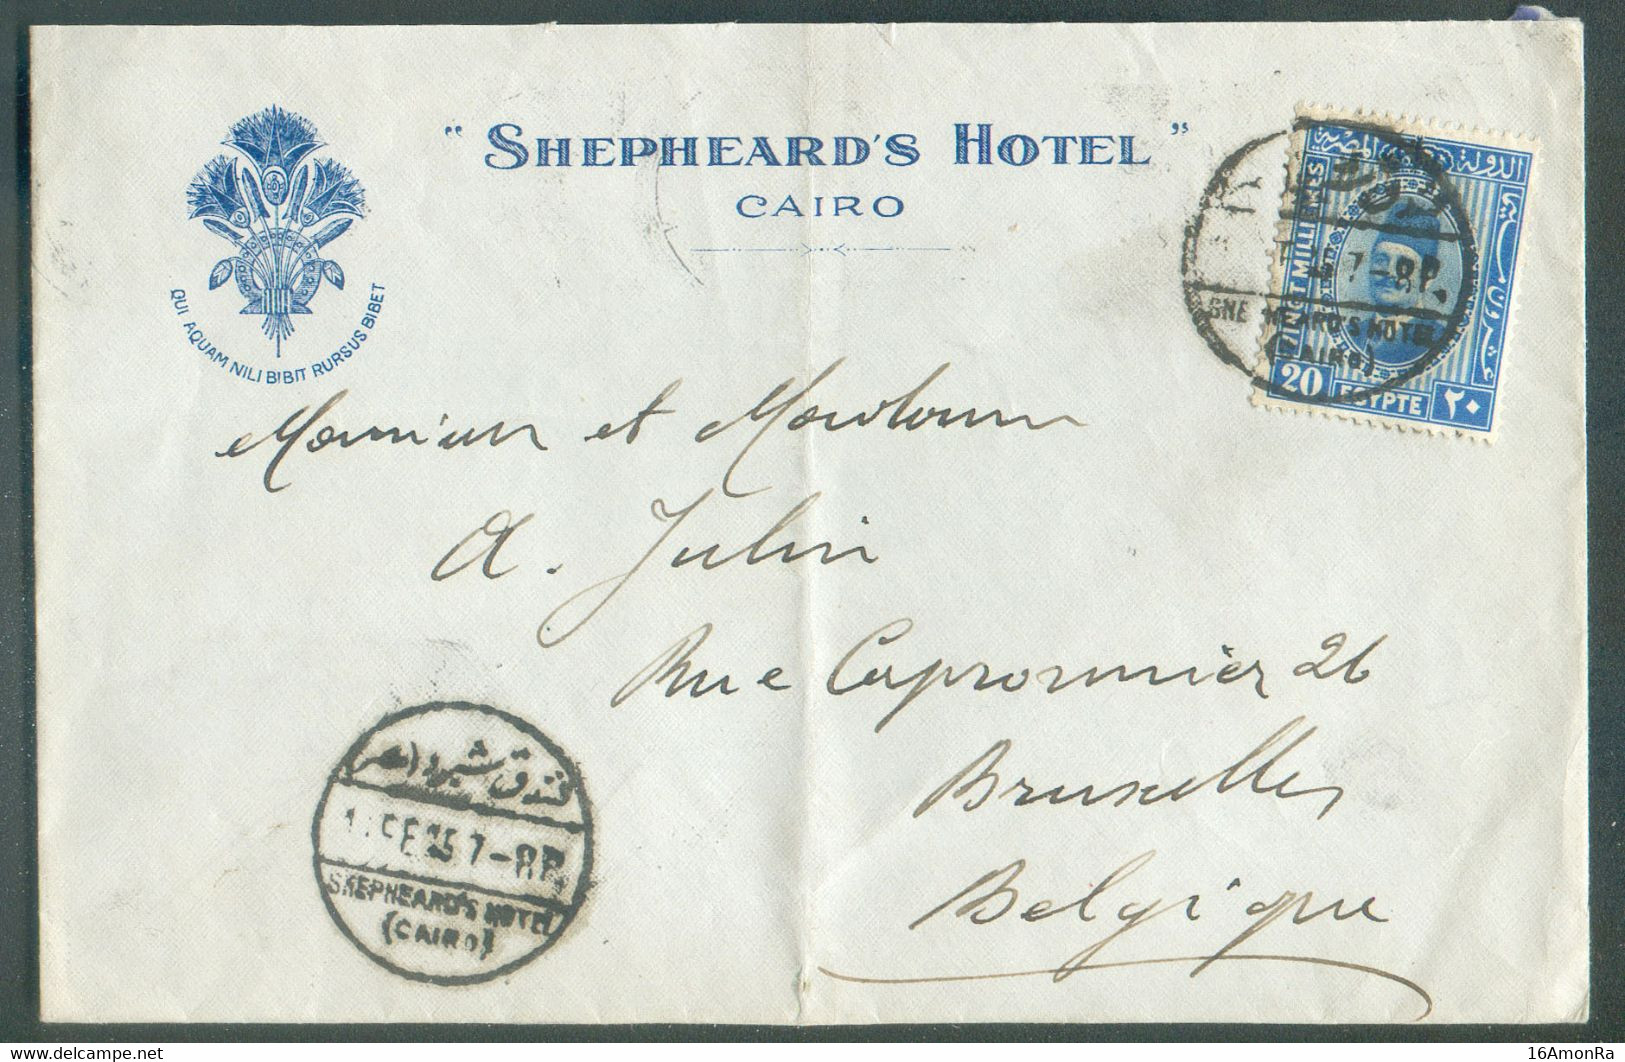 " SHEPHEARD'S HOTEL "
CAIRO
QUI AQUAM NILI BIBIT RURSUS BIBET
الدولة المصرية
VINGT MILLIEMES
20 EGYPTE ٢٠
7-8P.
SHEPHEARD'S HOTEL
(CAIRO)
Monsieur et Madame
A. Julin
Rue Capronnier 26
Bruxelles
Belgique
فندق شبرد (مصر)
FE 7-8P.
SHEPHEARD'S HOTEL
(CAIRO)
www.delcampe.net
16AmonRa